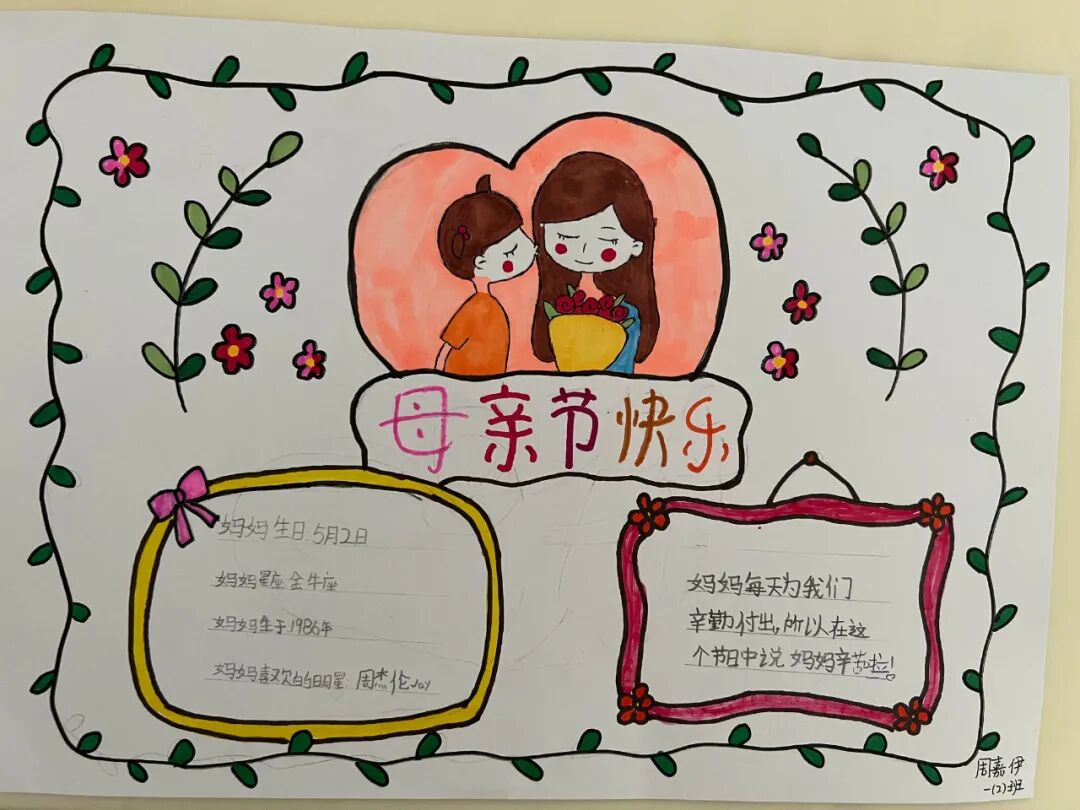 母亲节快乐
妈妈生日:5月2日
妈妈星座:金牛座
妈妈生于1986年
妈妈喜欢的明星:周杰伦Jay
妈妈每天为我们
辛勤付出,所以在这
个节日中说妈妈辛苦啦!
周嘉伊
一(2)班